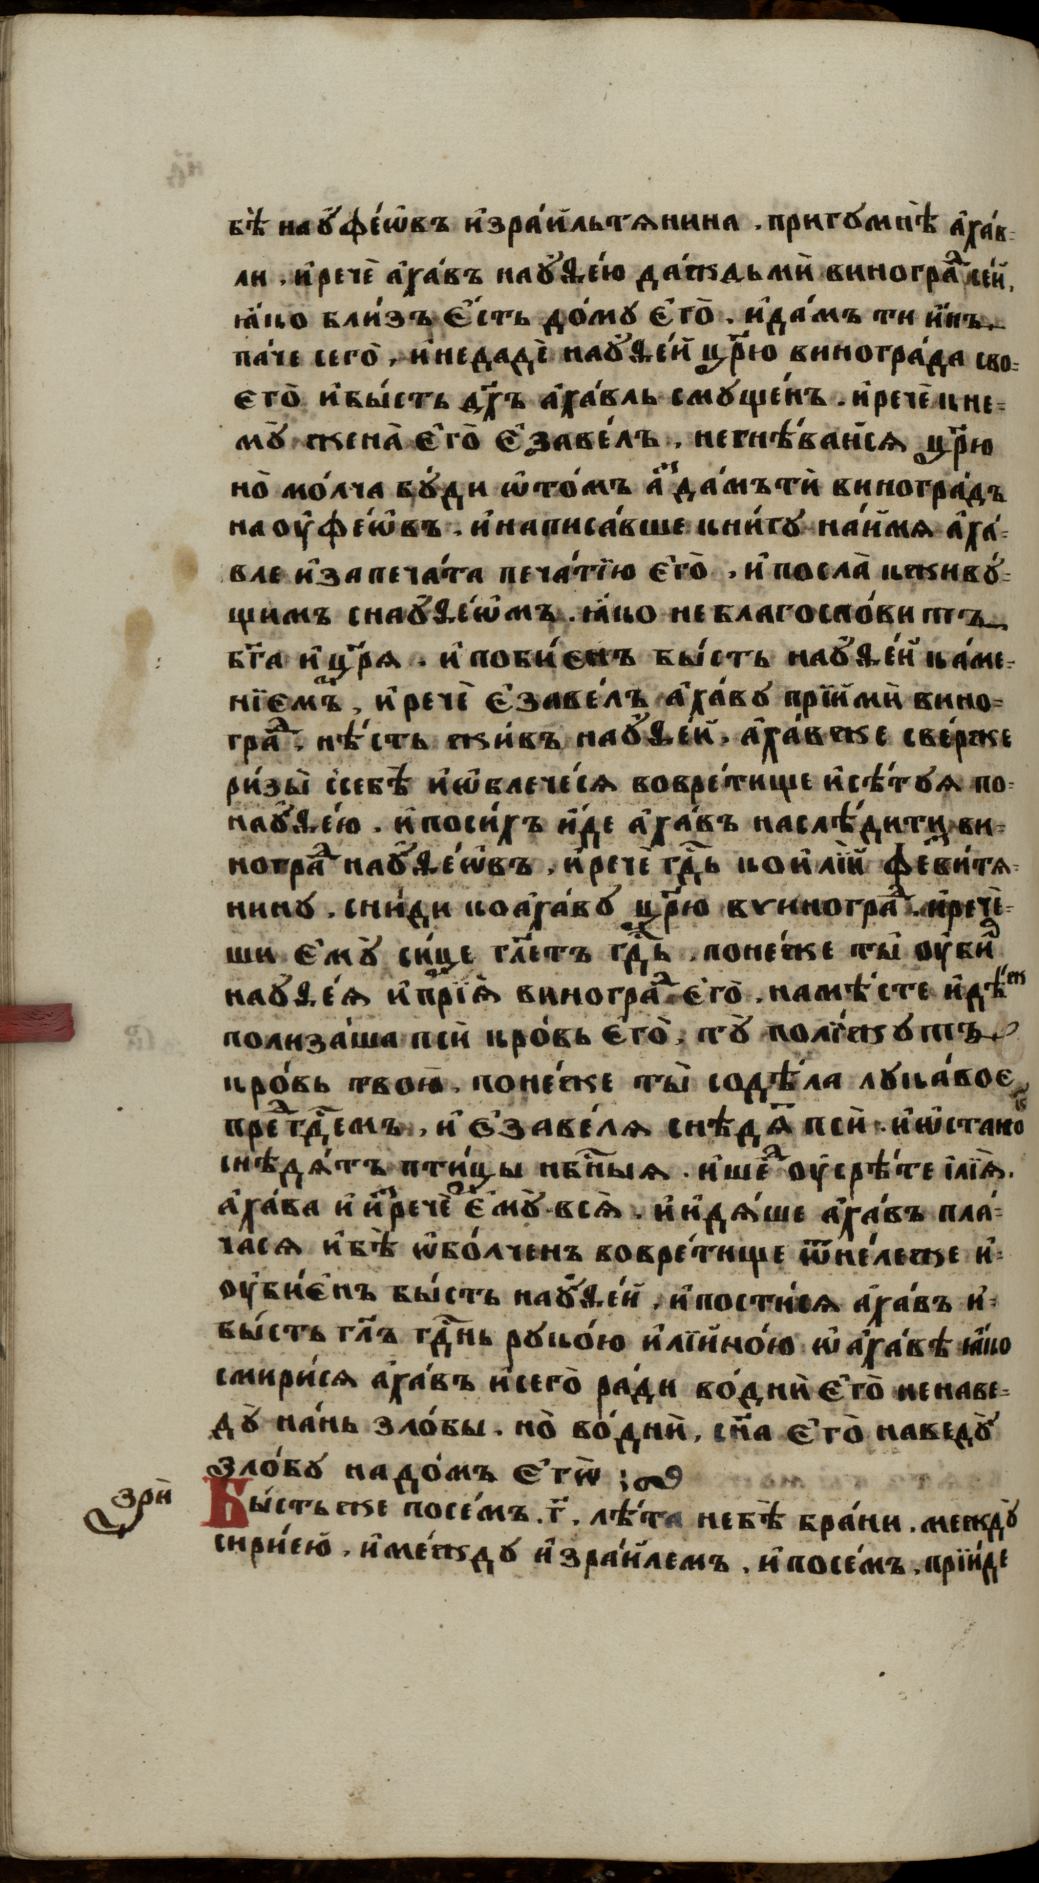 бѣ̀ наꙋ҆фе́ѡвъ и҆зра́ильтѧнина . пригꙋмнѣ̀ а҆ха́в-
ли . и҆речѐ а҆ха́въ наꙋ҆ѳе́ю да́ждьмѝ виногра́ⷣ сеи́,
ꙗ҆́ко бли́зъ є҆́сть до́мꙋ є҆гѡ̀ . и҆да́мъ ти и҆́нъ
па́че сегѡ̀ , и҆недадѐ наꙋ҆ѳе́й цр҃ю виногра́да сво-
егѡ̀ и҆бы́сть дх҃ъ а҆ха́вль смꙋще́нъ . и҆речѐ кне-
мꙋ̀ жена̀ є҆гѡ̀ є҆заве́ль , негнѣ́вайсѧ цр҃ю
но̀ мо́лча бꙋ́ди ѡ҆то́мъ а҆́зⸯ да́мътѝ виногра́дъ
наоу҆фе́ѡвъ . и҆написа́вше кни́гꙋ на́имѧ а҆ха́-
вле и҆запеча́та печа́тїю є҆гѡ̀ , и҆посла̀ кживꙋ́-
щимъ снаꙋ҆ѳе́ѡмъ . ꙗ҆́ко неблагосло́витъ
бг҃а и҆цр҃ѧ . и҆поби́енъ бы́сть наꙋ҆ѳе́й ка́ме-
нїемъ , и҆речѐ є҆заве́ль а҆ха́вꙋ прїимѝ вино-
гра́ⷣ , нѣ́сть жи́въ наꙋ҆ѳе́й , а҆ха́вже све́рже
ри́зы ссебѣ̀ и҆ѡ҆блече́сѧ вовре́тище и҆сѣ́тꙋѧ по-
наꙋ҆ѳе́ю . и҆поси́хъ и҆́де а҆ха́въ наслѣ́дити ви-
ногра́ⷣ наꙋ҆ѳе́ѡвъ , и҆речѐ гд҇ь кои҆лїи́ феви́тѧ-
нинꙋ . сни́ди коа҆ха́вꙋ цр҃ю вꙋиногра́ⷣ . и҆рече́-
ши є҆мꙋ̀ си́це гл҃етъ гд҇ь . поне́же ты̀ оу҆бѝ
наꙋ҆ѳе́ѧ и҆прїѧ̀ виногра́ⷣ є҆гѡ̀ , намѣ́сте и҆дѣ́ⷤ
полиза́ша псѝ кро́вь є҆гѡ̀ , тꙋ̀ поли́жꙋтъ
кро́вь твою̀ , поне́же ты̀ содѣ́ла лꙋка́вое
преⷣ гд҇емъ , и҆є҆заве́лѧ снѣдѧ́ⷮ псѝ . и҆ѡ҆стано́ⷦ
снѣдѧ́тъ пти́цы нбⷭ҇ныѧ . и҆ше́ⷣ оу҆срѣ́те і҆лїѧ̀ .
а҆ха́ва и҆и҆зⸯречѐ є҆мꙋ̀ всѧ̀ . и҆и҆дѧ́ше а҆ха́въ пла́-
часѧ и҆бѣ̀ ѡ҆бо́лченъ вовре́тище ѿне́леже и҆-
оу҆би́енъ бы́сть наꙋ҆ѳе́й , и҆пости́сѧ а҆ха́въ и҆-
бы́сть гл҃ъ гд҇нь рꙋко́ю и҆лїйно́ю ѡ҆а҆ха́вѣ ꙗ҆́ко
смири́сѧ а҆ха́въ и҆сегѡ̀ ра́ди во́днѝ є҆гѡ̀ ненаве-
дꙋ̀ на́нь зло́бы . но̀ во́днѝ , сн҃а є҆гѡ̀ наведꙋ̀
зло́бꙋ надо́мъ є҆гѡ̀ :
зрѝ
Бы́стьже посе́мъ . г҃ . лѣ́та небѣ̀ бра́ни . междꙋ̀
сирі́ею , и҆ме́ждꙋ и҆зра́илемъ , и҆посе́мъ , прїи́де